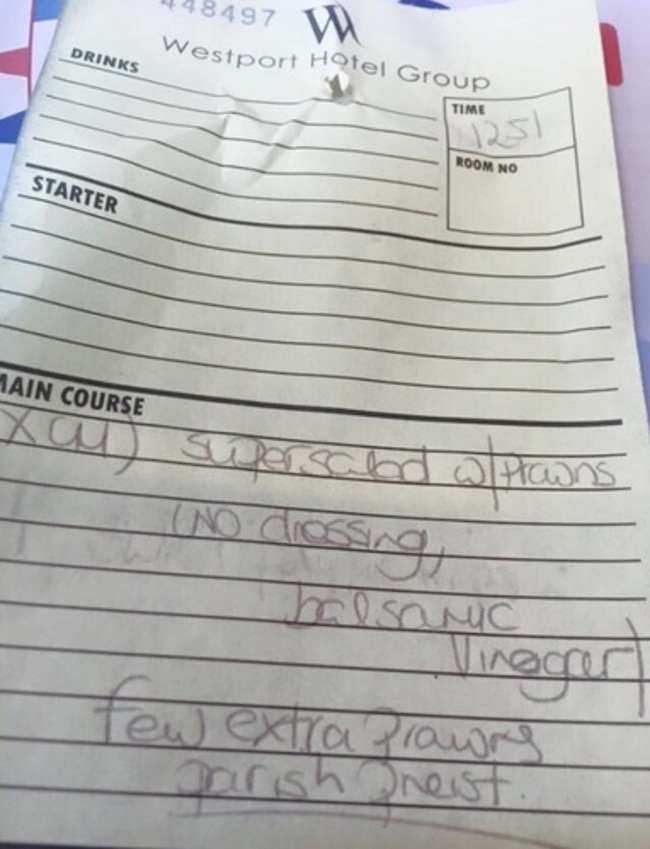 448497
W
Westport Hotel Group
DRINKS
TIME
1251
ROOM NO
STARTER
MAIN COURSE
supersalad w/Prawns
(NO dressing,
balsamic
Vinegar)
few extra Prawns
parish Preist.